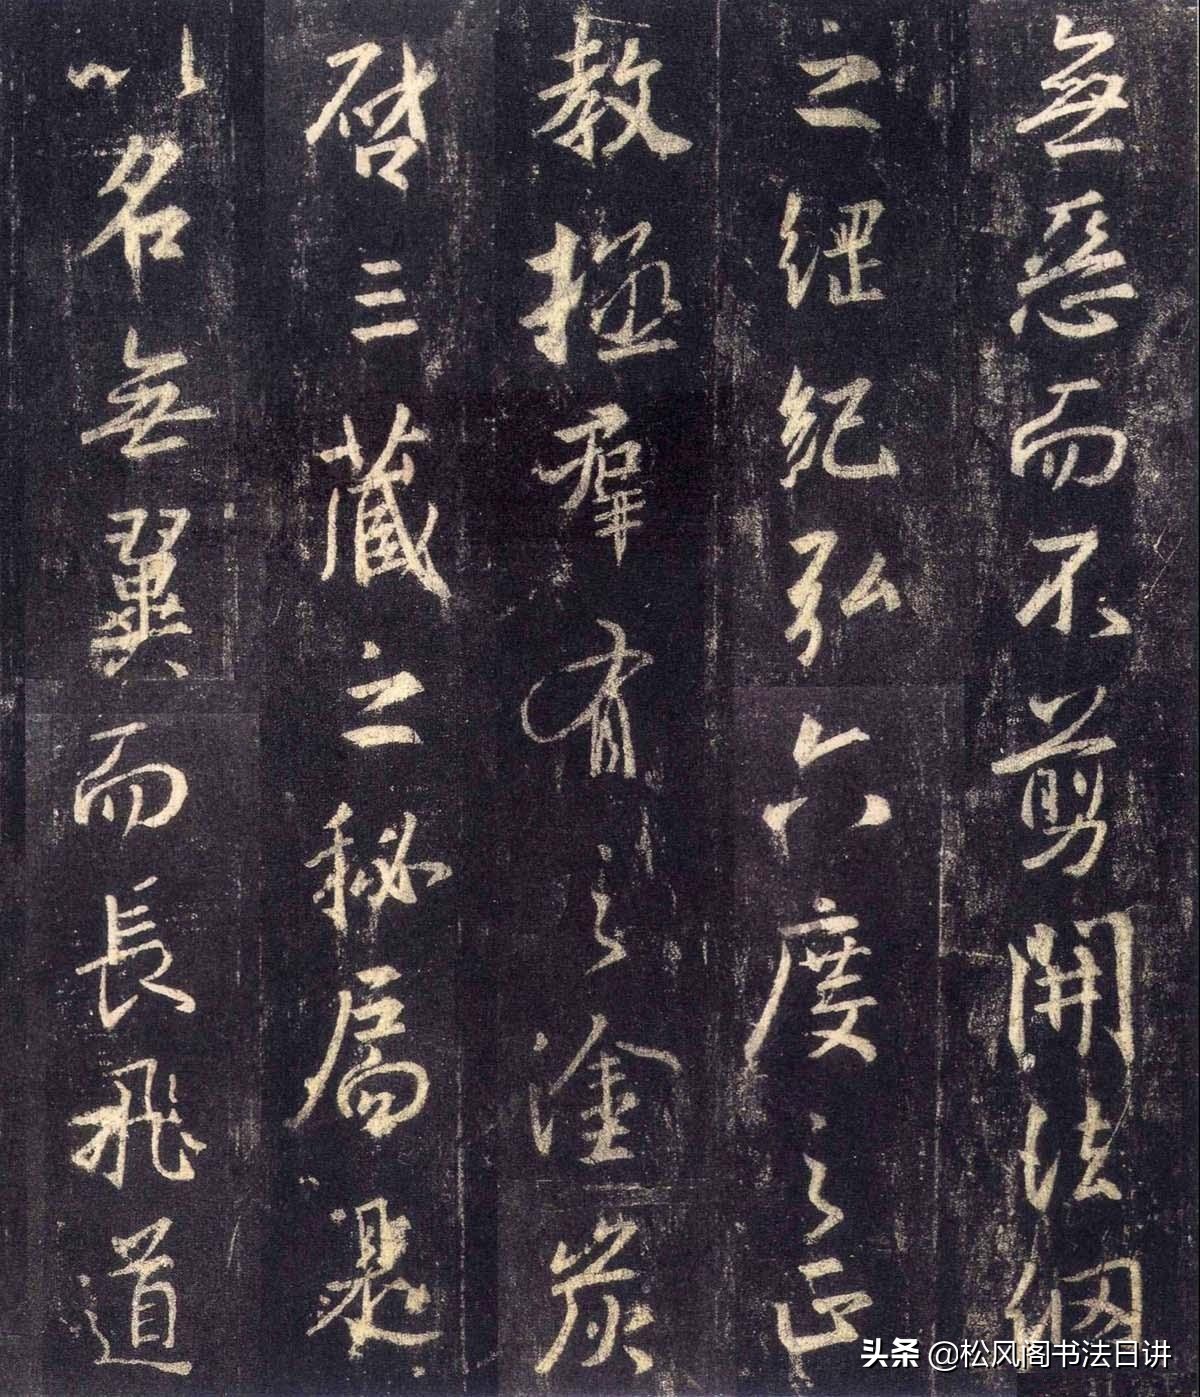 無惡而不剪開法網
之綱紀弘六度之正
教拯群有之塗炭
啓三藏之秘扃是
以名無翼而長飛道
头条 @松风阁书法日讲